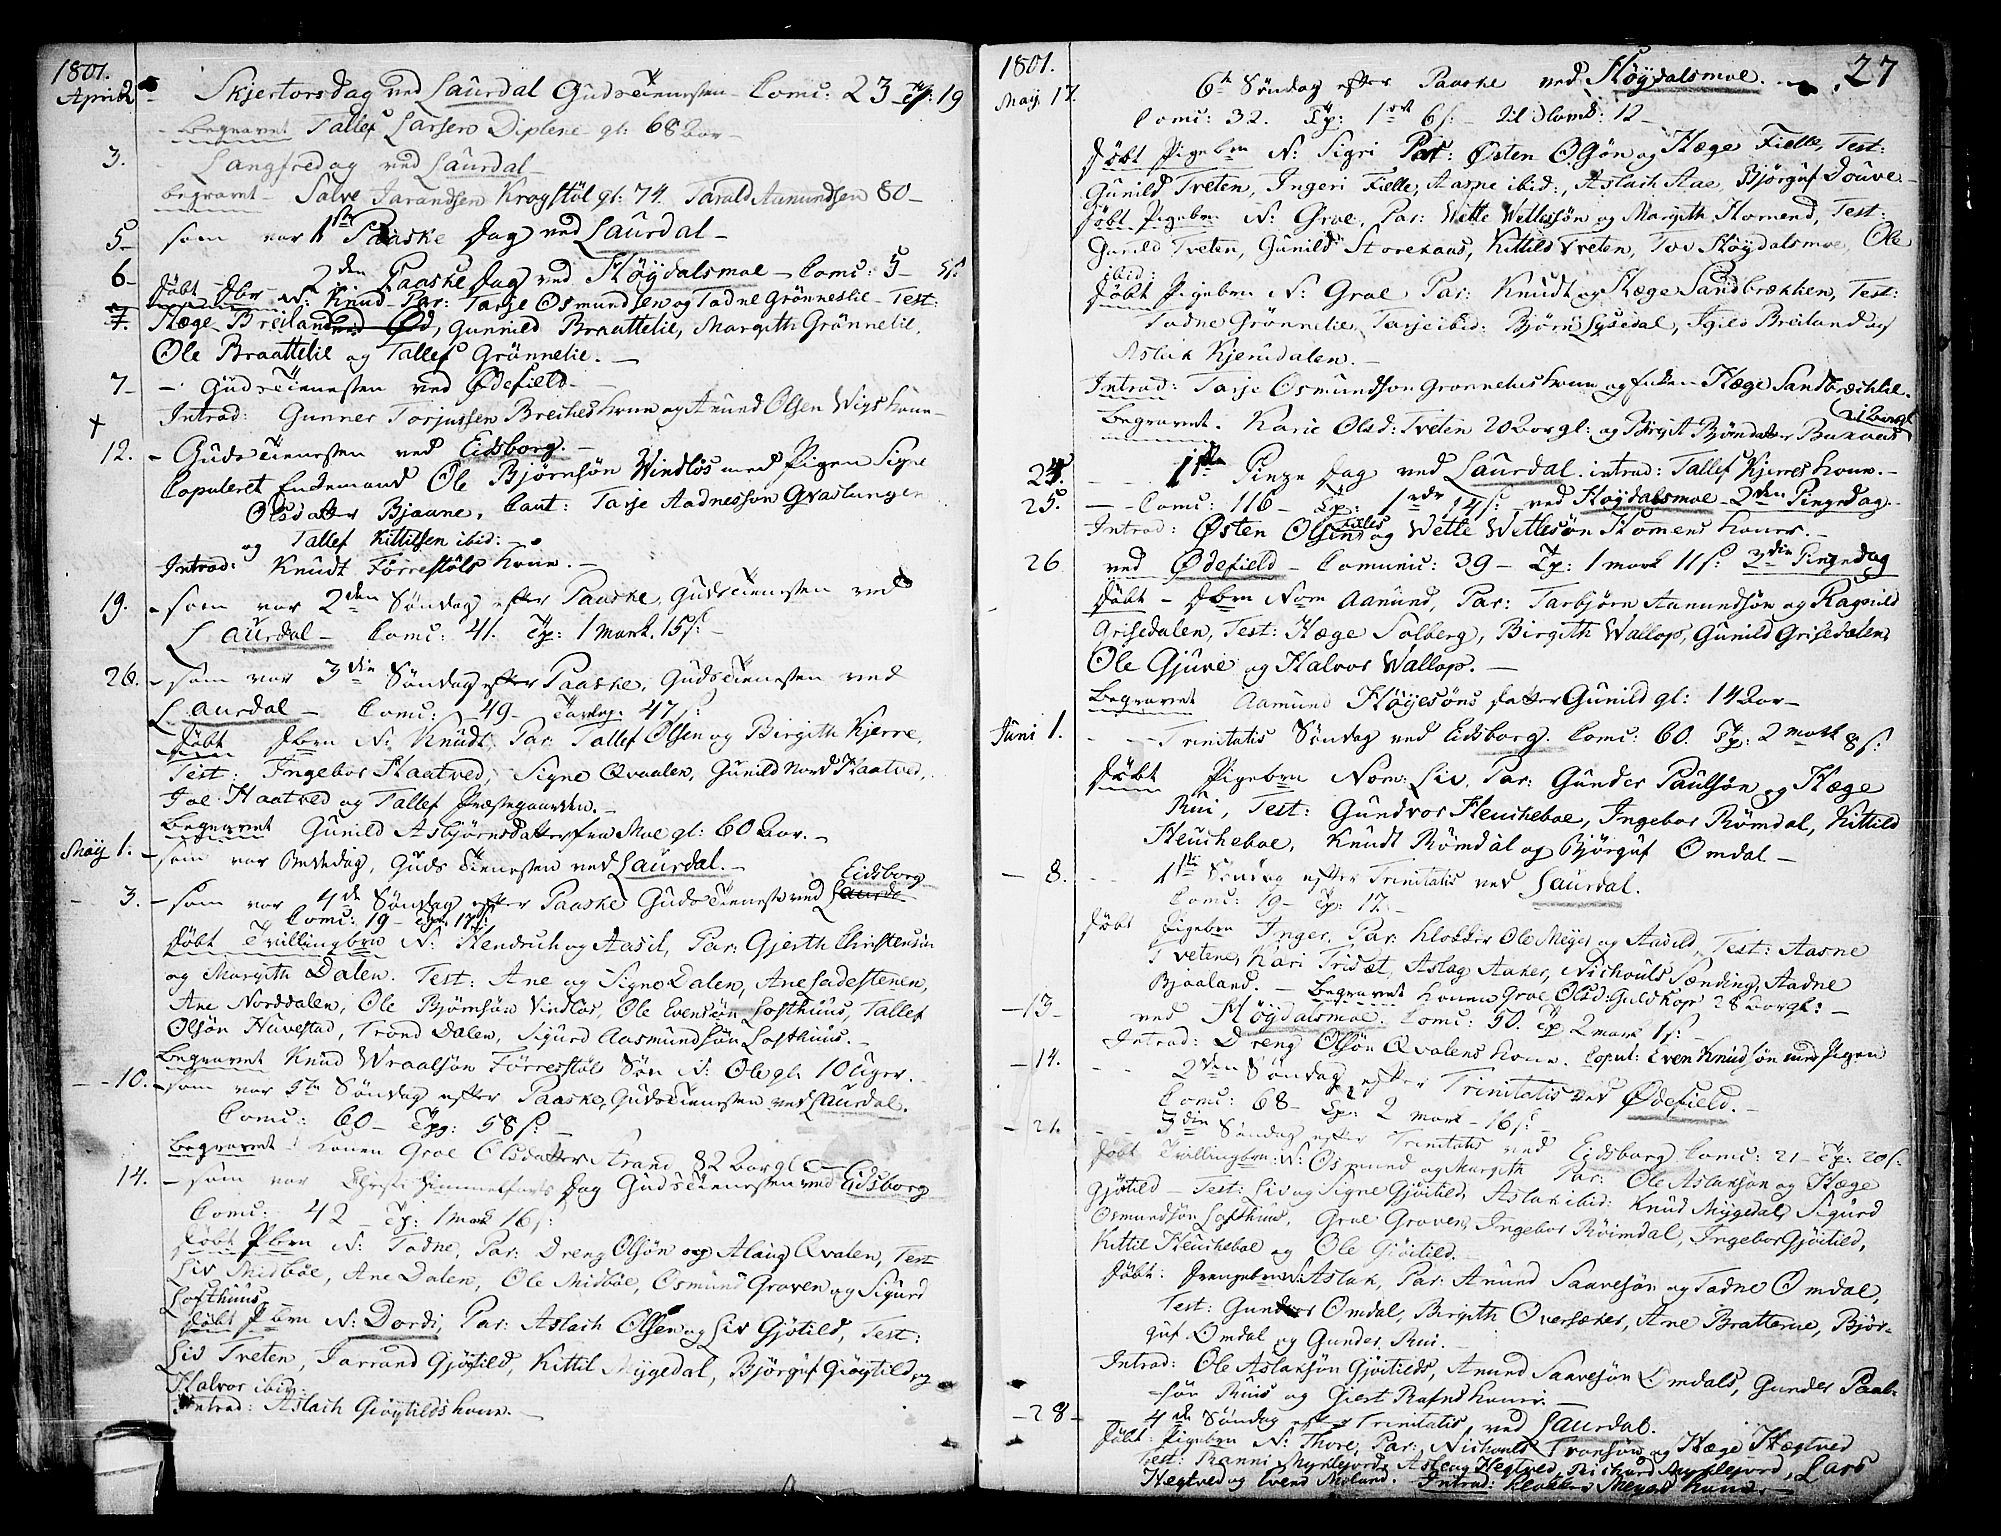 1801.
April 2 - Skjertorsdag ved Laurdal Gudstienesten - Comu: 23 Tp: 19
- Begravet Tallef Larsen Diplene gl: 68 Aar -
3. Langfredag ved Laurdal -
begravet - Salve Jarandsen Krogstöl gl: 74. Tarald Aamundsen 80 -
5 - som var 1ste Paaske Dag ved Laurdal -
6 - 2den Paaske Dag ved Höydalsmoe - Comu: 5 - 5 s:
Döbt Dbr N: Knud Par: Tarje Osmundsen og Tadne Grönneslie - Test:
7. Hæge Breiland, Gunnild Braattelie, Margith Grönnelie,
Ole Braattelie og Tallef Grönnelie. -
7 - - Gudstienesten ved Ødefield -
Introd: Gunner Torjussen Breches Kone og Anund Olsen Wigs Kone -
12. - Gudstienesten ved Eidsborg. -
Copuleret Enkemand Ole Björnsön Vindlös med Pigen Signe
Olsdatter Bjaane, Caut: Tarje Aadnesson Qvaslungen
og Tallef Kittilsen ibid: -
Introd: Knudt Förrestöls Kone. -
19. - som var 2den Söndag efter Paaske, Gudstienesten ved
Laurdal - Comu: 41. Tp: 1 Mark. 15 s: -
26. - som var 3die Söndag efter Paaske, Gudstienesten ved
Laurdal - Comu: 49 - Tavlep: 47 s:
Döbt Dbrn N: Knudt, Par: Tallef Olsen og Birgith Kjerre,
Test: Ingebor Haatved, Signe Qvaalen, Gunild Nord Haatved,
Joe Haatved og Tallef Præstegaarden. -
Begravet Gunild Asbjörnsdatter fra Moe gl: 60 Aar. -
May 1. - som var Bededag, Guds Tienesten ved Laurdal. -
3. - som var 4de Söndag efter Paaske Gudstieneste ved Eidsborg
Comu: 19 - Tp: 17 s:
Döbt Tvillingbrn N: Hendrich og Aasil, Par: Gjerth Christensen
og Margith Dalen. Test: Ane og Signe Dalen, Ane Ladestenen,
Ane Norddalen, Ole Björnsön Vindlös, Ole Evensön Lofthuus, Tallef
Olsön Huvestad, Trond Dalen, Sigurd Aasmundsön Lofthuus. -
Begravet Knud Wraalsön Förrestöls Sön N: Ole gl: 10 Uger.
10. - som var 5te Söndag efter Paaske, Gudstienesten ved Laurdal.
Comu: 60 - Tp: 58 s: -
Begravet: Konen Groe Olsdatter Strand 82 Aar gl: -
14. - som var Christi Himmelfarts Dag Gudstienesten ved Eidsborg
Comu: 42 - Tp: 1 Mark 16 s:
Döbt Pbrn N: Tadne, Par: Dreng Olsön og Aslaug Qvalen, Test
Liv Midböe, Ane Dalen, Ole Midböe, Osmund Groven og Sigurd
Lofthuus. -
Döbt Pbrn N: Dordi, Par: Aslach Olsen og Liv Gjötild, Test:
Liv Treten, Jarrand Gjöÿtild, Kittil Mygedal, Björguf Giöytild og
Halvor ibid:
Introd: Aslach Giöytilds Kone. -
1801. 27
May 17. 6te Söndag efter Paaske ved Höydalsmoe. -
Comu: 32. Tp: 1 ort 6 s: -
Döbt Pigebrn N: Sigri Par: Østen Olsön og Hæge Fielle, Test:
Gunild Treten, Ingeri Fielle, Aasne ibid:, Aslach Aae, Björguf Douve -
Döbt Pigebrn N: Groe, Par: Wetle Wetlesön og Margith Homend, Test:
Gunild Treten, Gunild Storehaas, Kittild Treten, Tov Höydalsmoe, Ole
ibid:
Döbt Pigebrn N: Groe Par: Knudt og Hæge Sandbrækken, Test:
Tadne Grönnelie, Tarje ibid: Björn Lysedal, Egild Breiland og
Aslak Kjemdalen. -
Introd: Tarje Osmundson Grønnelies Kone og Hæge Sandbrækkelie.
Begravet. Karie Olsd: Treten 20 Aar gl: og Birgit Björnsdatter
24. - - 1ste Pinze Dag ved Laurdal. introd: Tallef Kjerres Kone. -
25. - - Comu: 116 - Tp: 1 14 s: ved Höydalsmoe - 2den Pinzedag -
Introd: Østen Olsens Fielles og Wetle Wetlesön Homens Koner. -
26 ved Ødefield - Comunic: 39 - Tp: 1 mark 11 s: 3die Pinzedag
Döbt - Dbrn Nom Aamund, Par: Tarbjörn Aamundsön og Ragnild
Grisedalen, Test: Hæge Solberg, Birgith Wallop, Gunild Grisedalen,
Ole Gjuve og Halvor Wallop. -
Begravet Aamund Höyesöns Datter Gunild gl: 14 Aar -
Juni 1. - - Trinitatis Söndag ved Eidsborg. Comu: 60. Tp: 2 mark 8 s:
Döbt Pigebrn Nom: Liv, Par: Gunder Paulsön og Hæge
Rui, Test: Gundvor Heucheboe, Ingebor Römdal, Kittild
Heucheboe, Knudt Römdal og Björguf Omdal -
- 8. - - 1ste Söndag efter Trinitatis ved Laurdal.
Comu: 19 - Tp: 17 -
Döbt Pigebrn Inger, Par: Klokker Ole Meyer og Aasild, Test: Aasne
Tvetene, Kari Trisæt, Aslag Aaker, Nichouls Sænding, Aadne
Bjaaland. - Begravet Konen Groe Olsd: Guldkop 28 Aar gl: -
- 13 - ved Höydalsmoe. Comu: 50. Tp 2 mark 1 s: -
Introd: Dreng Olsön Qvalens Kone. Copul: Even Knudsön med Pigen
- 14. - - 2den Söndag efter Trinitatis ved Ødefield. -
Comu: 68 - Tp: 2 mark 16 s: -
- 21. - - 3die Söndag efter Trinitatis ved Eidsborg Comu: 21 - Tp: 20 s:
Döbt Tvillingbrn: N: Osmund og Margith Par: Ole Aslaksön og Hæge
Gjötild - Test: Liv og Signe Gjöitild, Aslak ibid: Knud Mygedal, Sigurd
Osmundsön Lofthuus, Groe Groven, Ingebor Röimdal, Ingebor Gjöitild,
Kittil Heucheboe og Ole Giöitild. -
Döbt: Drengebrn N: Aslak, Par: Anund Saavesön og Tadne Omdal,
Test: Gundvor Omdal, Birgith Oversæker, Ane Bratterue, Björ-
guf Omdal og Gunder Rui. -
Introd: Ole Aslaksön Gjöitilds, Anund Saavesön Omdals, Gunder Paul-
sön Ruis og Giest Rafns Koner. -
- 28 - 4de Söndag efter Trinitatis ved Laurdal.
Döbt: Pigebrn N: Thore, Par: Nichouls Tronsön og Hæge Hægtved
Test: Ranni Myklejord, Aslaug Hegtved, Richard Myklejord, Lars
Hegtved og Evend Moland. Introd: Klokker Meyers Kone. -